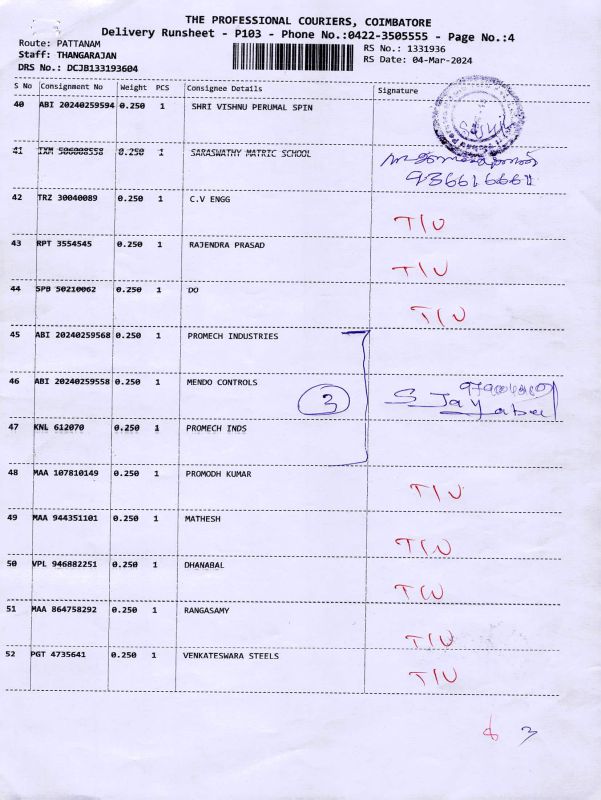 THE PROFESSIONAL COURIERS, COIMBATORE
Delivery Runsheet - P103 - Phone No.:0422-3505555 - Page No.:4
Route: PATTANAM RS No.: 1331936
Staff: THANGARAJAN RS Date: 04-Mar-2024
DRS No.: DCJB133193604
S No Consignment No Weight PCS Consignee Details Signature
40 ABI 20240259594 0.250 1 SHRI VISHNU PERUMAL SPIN
41 IXM 506008558 0.250 1 SARASWATHY MATRIC SCHOOL
9366616661
42 TRZ 30040089 0.250 1 C.V ENGG T/U
43 RPT 3554545 0.250 1 RAJENDRA PRASAD T/U
44 SPB 50210062 0.250 1 DO T/U
45 ABI 20240259568 0.250 1 PROMECH INDUSTRIES
46 ABI 20240259558 0.250 1 MENDO CONTROLS 3 S Jayabal
47 KNL 612070 0.250 1 PROMECH INDS
48 MAA 107810149 0.250 1 PROMODH KUMAR T/U
49 MAA 944351101 0.250 1 MATHESH T/U
50 VPL 946882251 0.250 1 DHANABAL T/U
51 MAA 864758292 0.250 1 RANGASAMY T/U
52 PGT 4735641 0.250 1 VENKATESWARA STEELS T/U
3